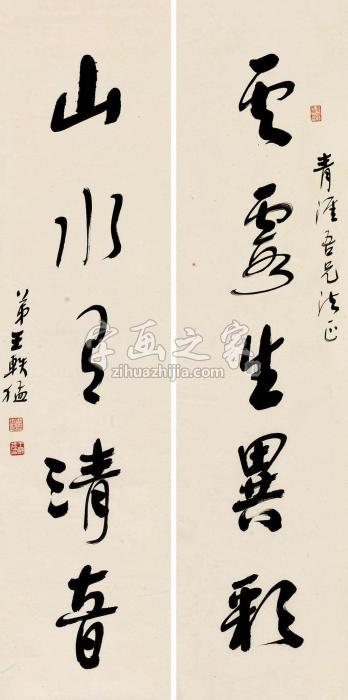 青涯吾兄法正
云霞生異彩
山水有清音
弟王軼猛
字画之家
zihuazhijia.com